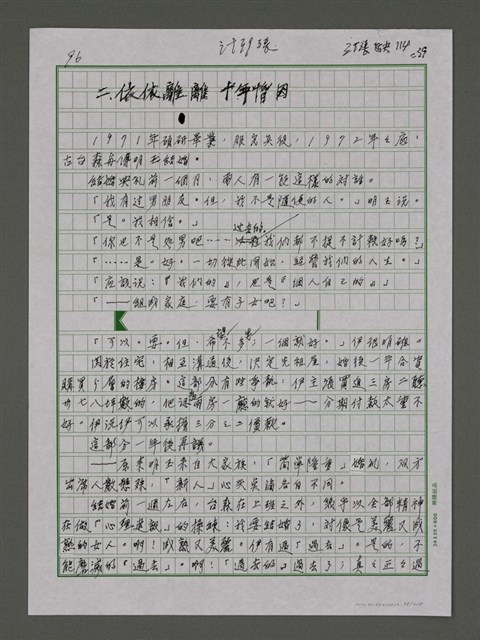 96
二、依依離離 十年惜因
1971年預研畢業,服完兵役,1972年之底,
古台森與傅明玉結婚。
結婚典禮前一個月,兩人有一段這樣的對話。
「我有過男朋友。但,我不是隨便的人。」明玉說。
「是。我相信。」
過去的,
「你也不是處男吧⋯⋯我們都不提不計較好嗎?」
「⋯⋯是。好。一切從此開始,經營我們的人生。」
「應該說:『我們的』,也是『個人自己的』」
「——組成家庭,要有子女吧?」
「可以。要。但,希望不多,一個就好。」伊很明確。
關於住宅,相互溝通後,決定先租屋,婚後一年合資
購買
層的樓房。這部分有些爭執,伊主張買進三房二廳
卅七八坪數的,他認
兩房一廳的就好——分期付款太重不
好。伊說伊可以承擔三分之二價款。
這部分一年後再議。
——原來明玉來自大家族,「簡單隆重」婚禮,雙方
出席人數懸殊,「新人」心
各自不同。
結婚前一週左右,台森在上班之外,幾乎以全部精神
在做「心理建設」的操練:我要結婚了,對像是美麗又成
熟的女人。啊!成熟又美麗。伊有過「過去」。是的,不
能磨滅的「過去」。啊!「過去的」過去了;真正正過